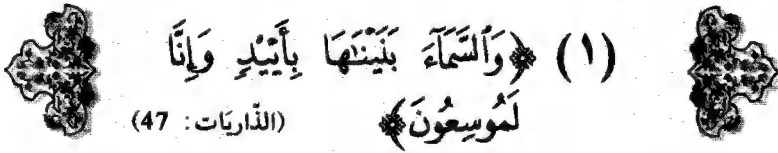 (١) ﴿وَٱلسَّمَآءَ بَنَيْنَٰهَا بِأَيْيْدٍ وَإِنَّا
لَمُوسِعُونَ﴾ (الذّاريَات: 47)